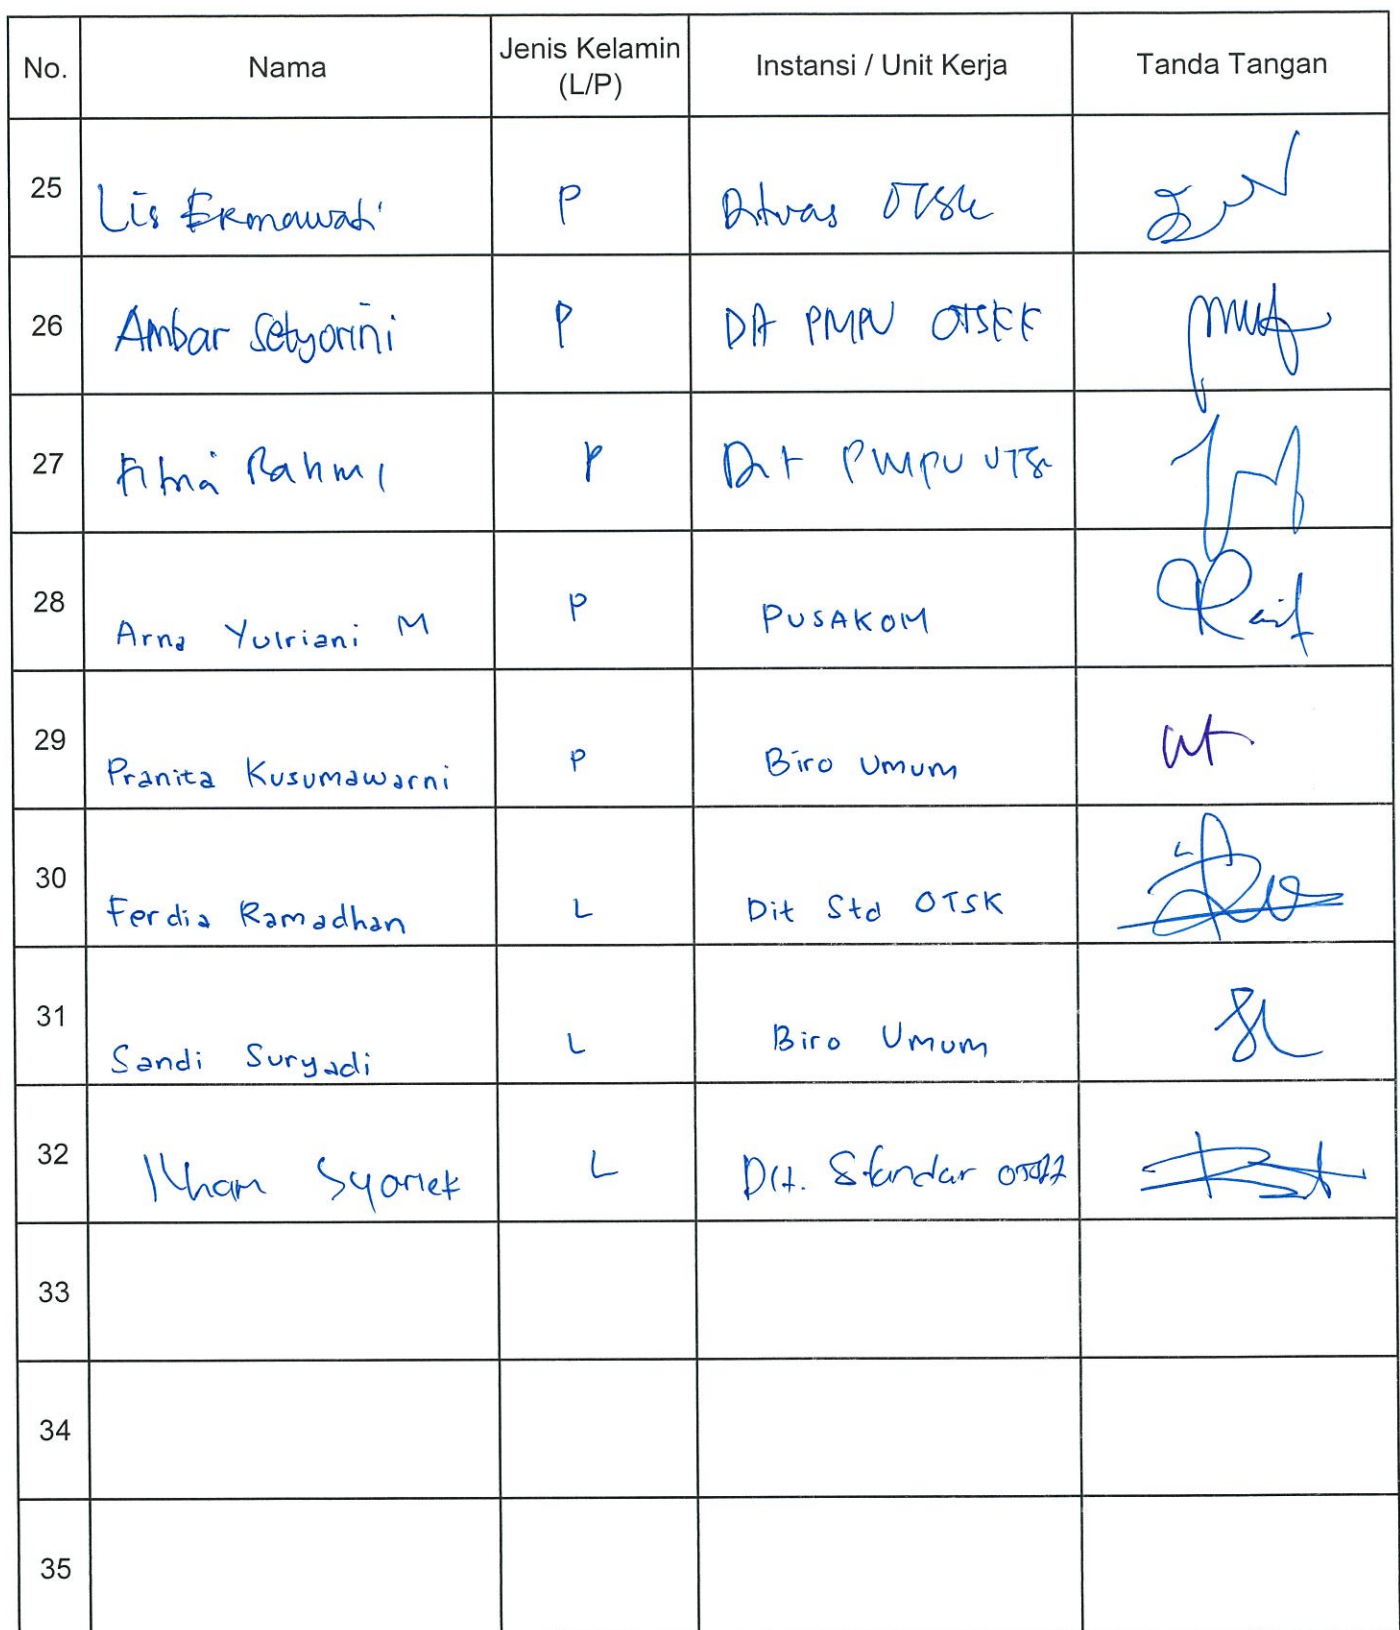 No. Nama Jenis Kelamin (L/P) Instansi / Unit Kerja Tanda Tangan
25 Lis Ermawati P Ditwas OTSK
26 Ambar Setyorini P Dit PMPU OTSKK
27 Fitria Rahmi P Dit PMPU OTSK
28 Arna Yulriani M P PUSAKOM
29 Pranita Kusumawarni P Biro Umum
30 Ferdia Ramadhan L Dit Std OTSK
31 Sandi Suryadi L Biro Umum
32 Ilham Syarief L Dit. Standar
33
34
35